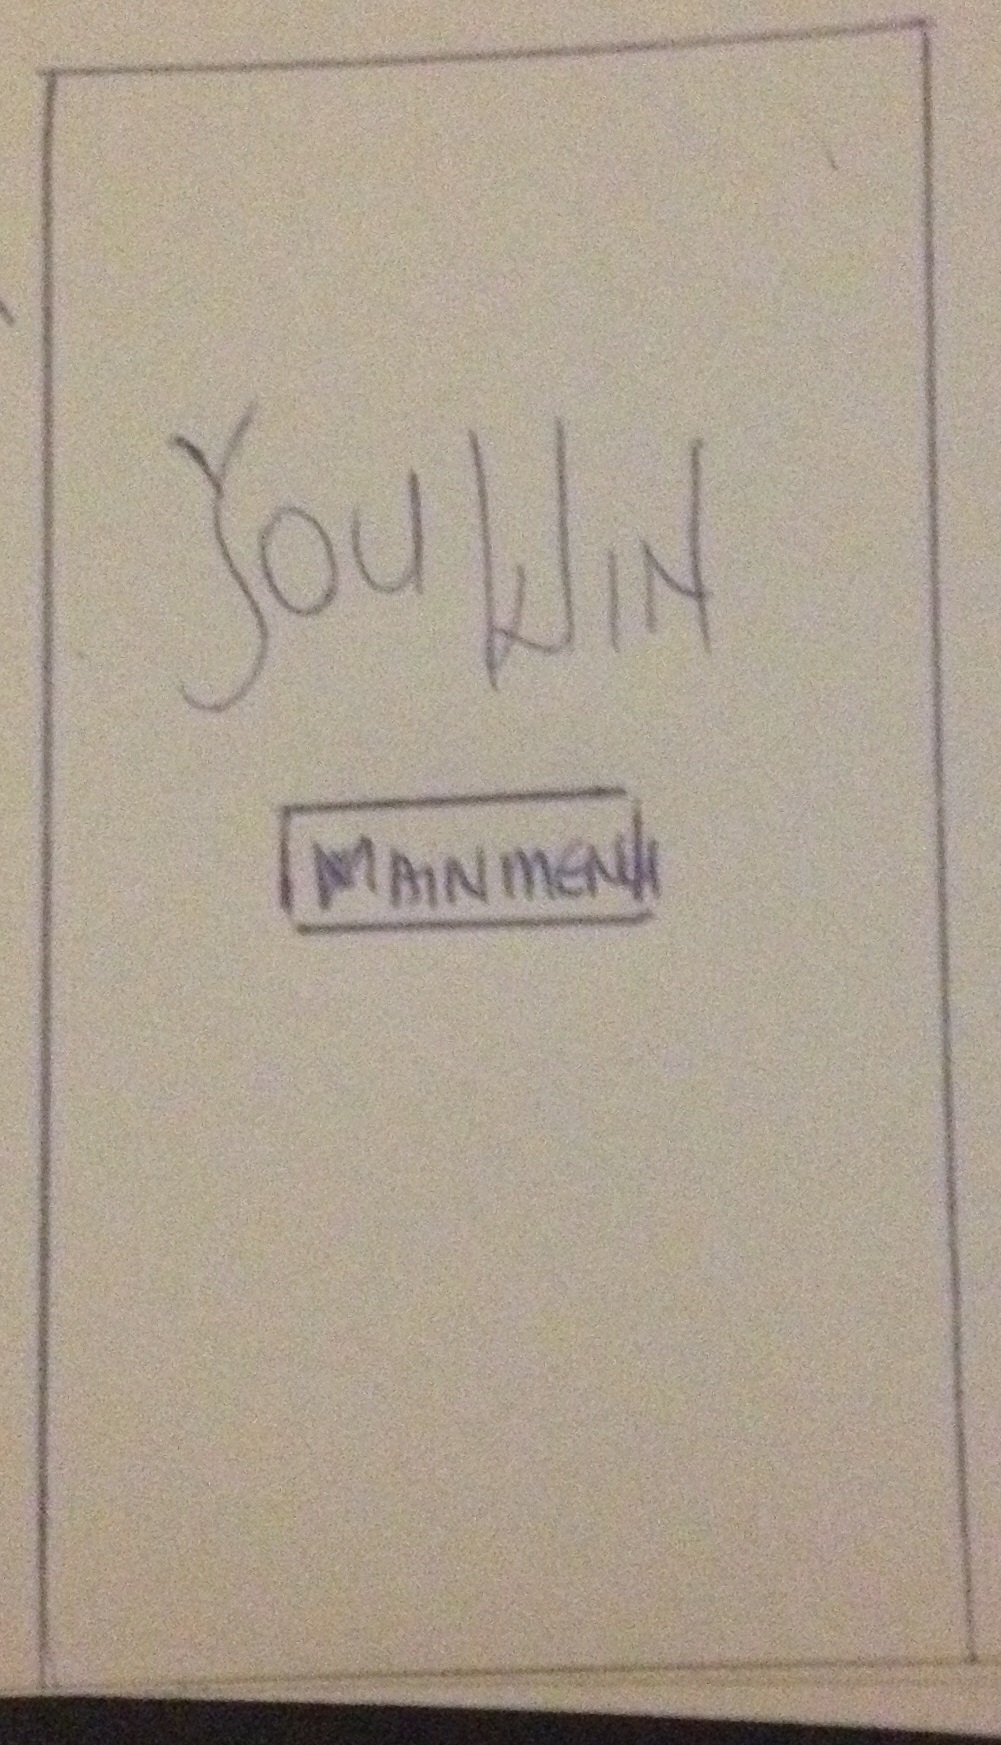 YOU WIN
MAIN MENU